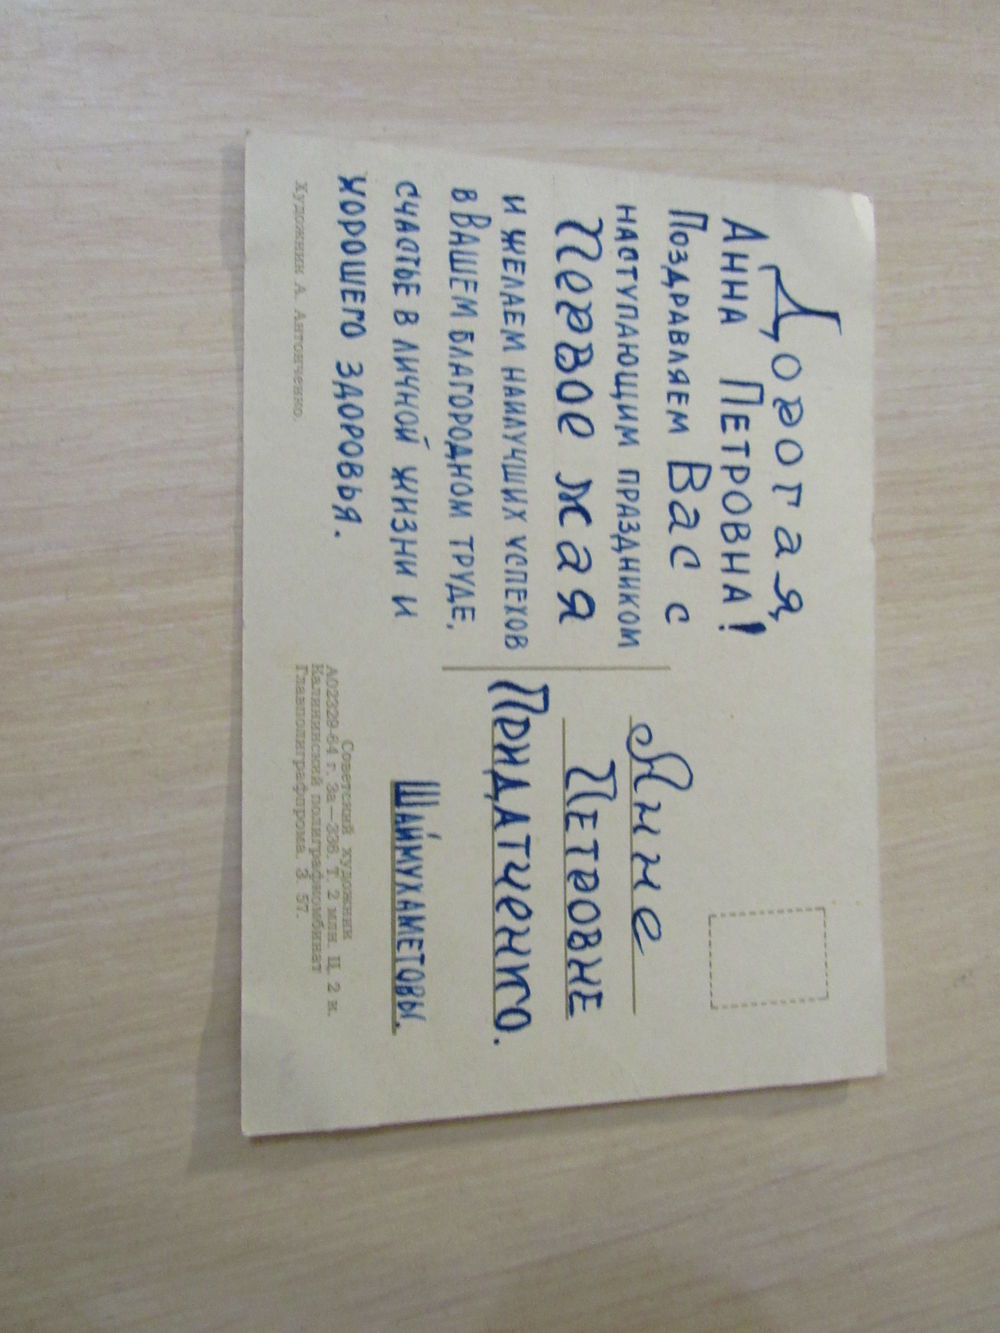 Дорогая,
Анна Петровна!
Поздравляем Вас с
наступающим праздником
Первое мая
и желаем наилучших успехов
в Вашем благородном труде,
счастье в личной жизни и
хорошего здоровья.
Художник А. Антонченко.
Анне
Петровне
Придатченко.
Шаймухаметовы.
Советский художник
А02329-64 г. За—336. Т. 2 млн. Ц. 2 к.
Калининский полиграфкомбинат
Главполиграфпрома. З. 57.